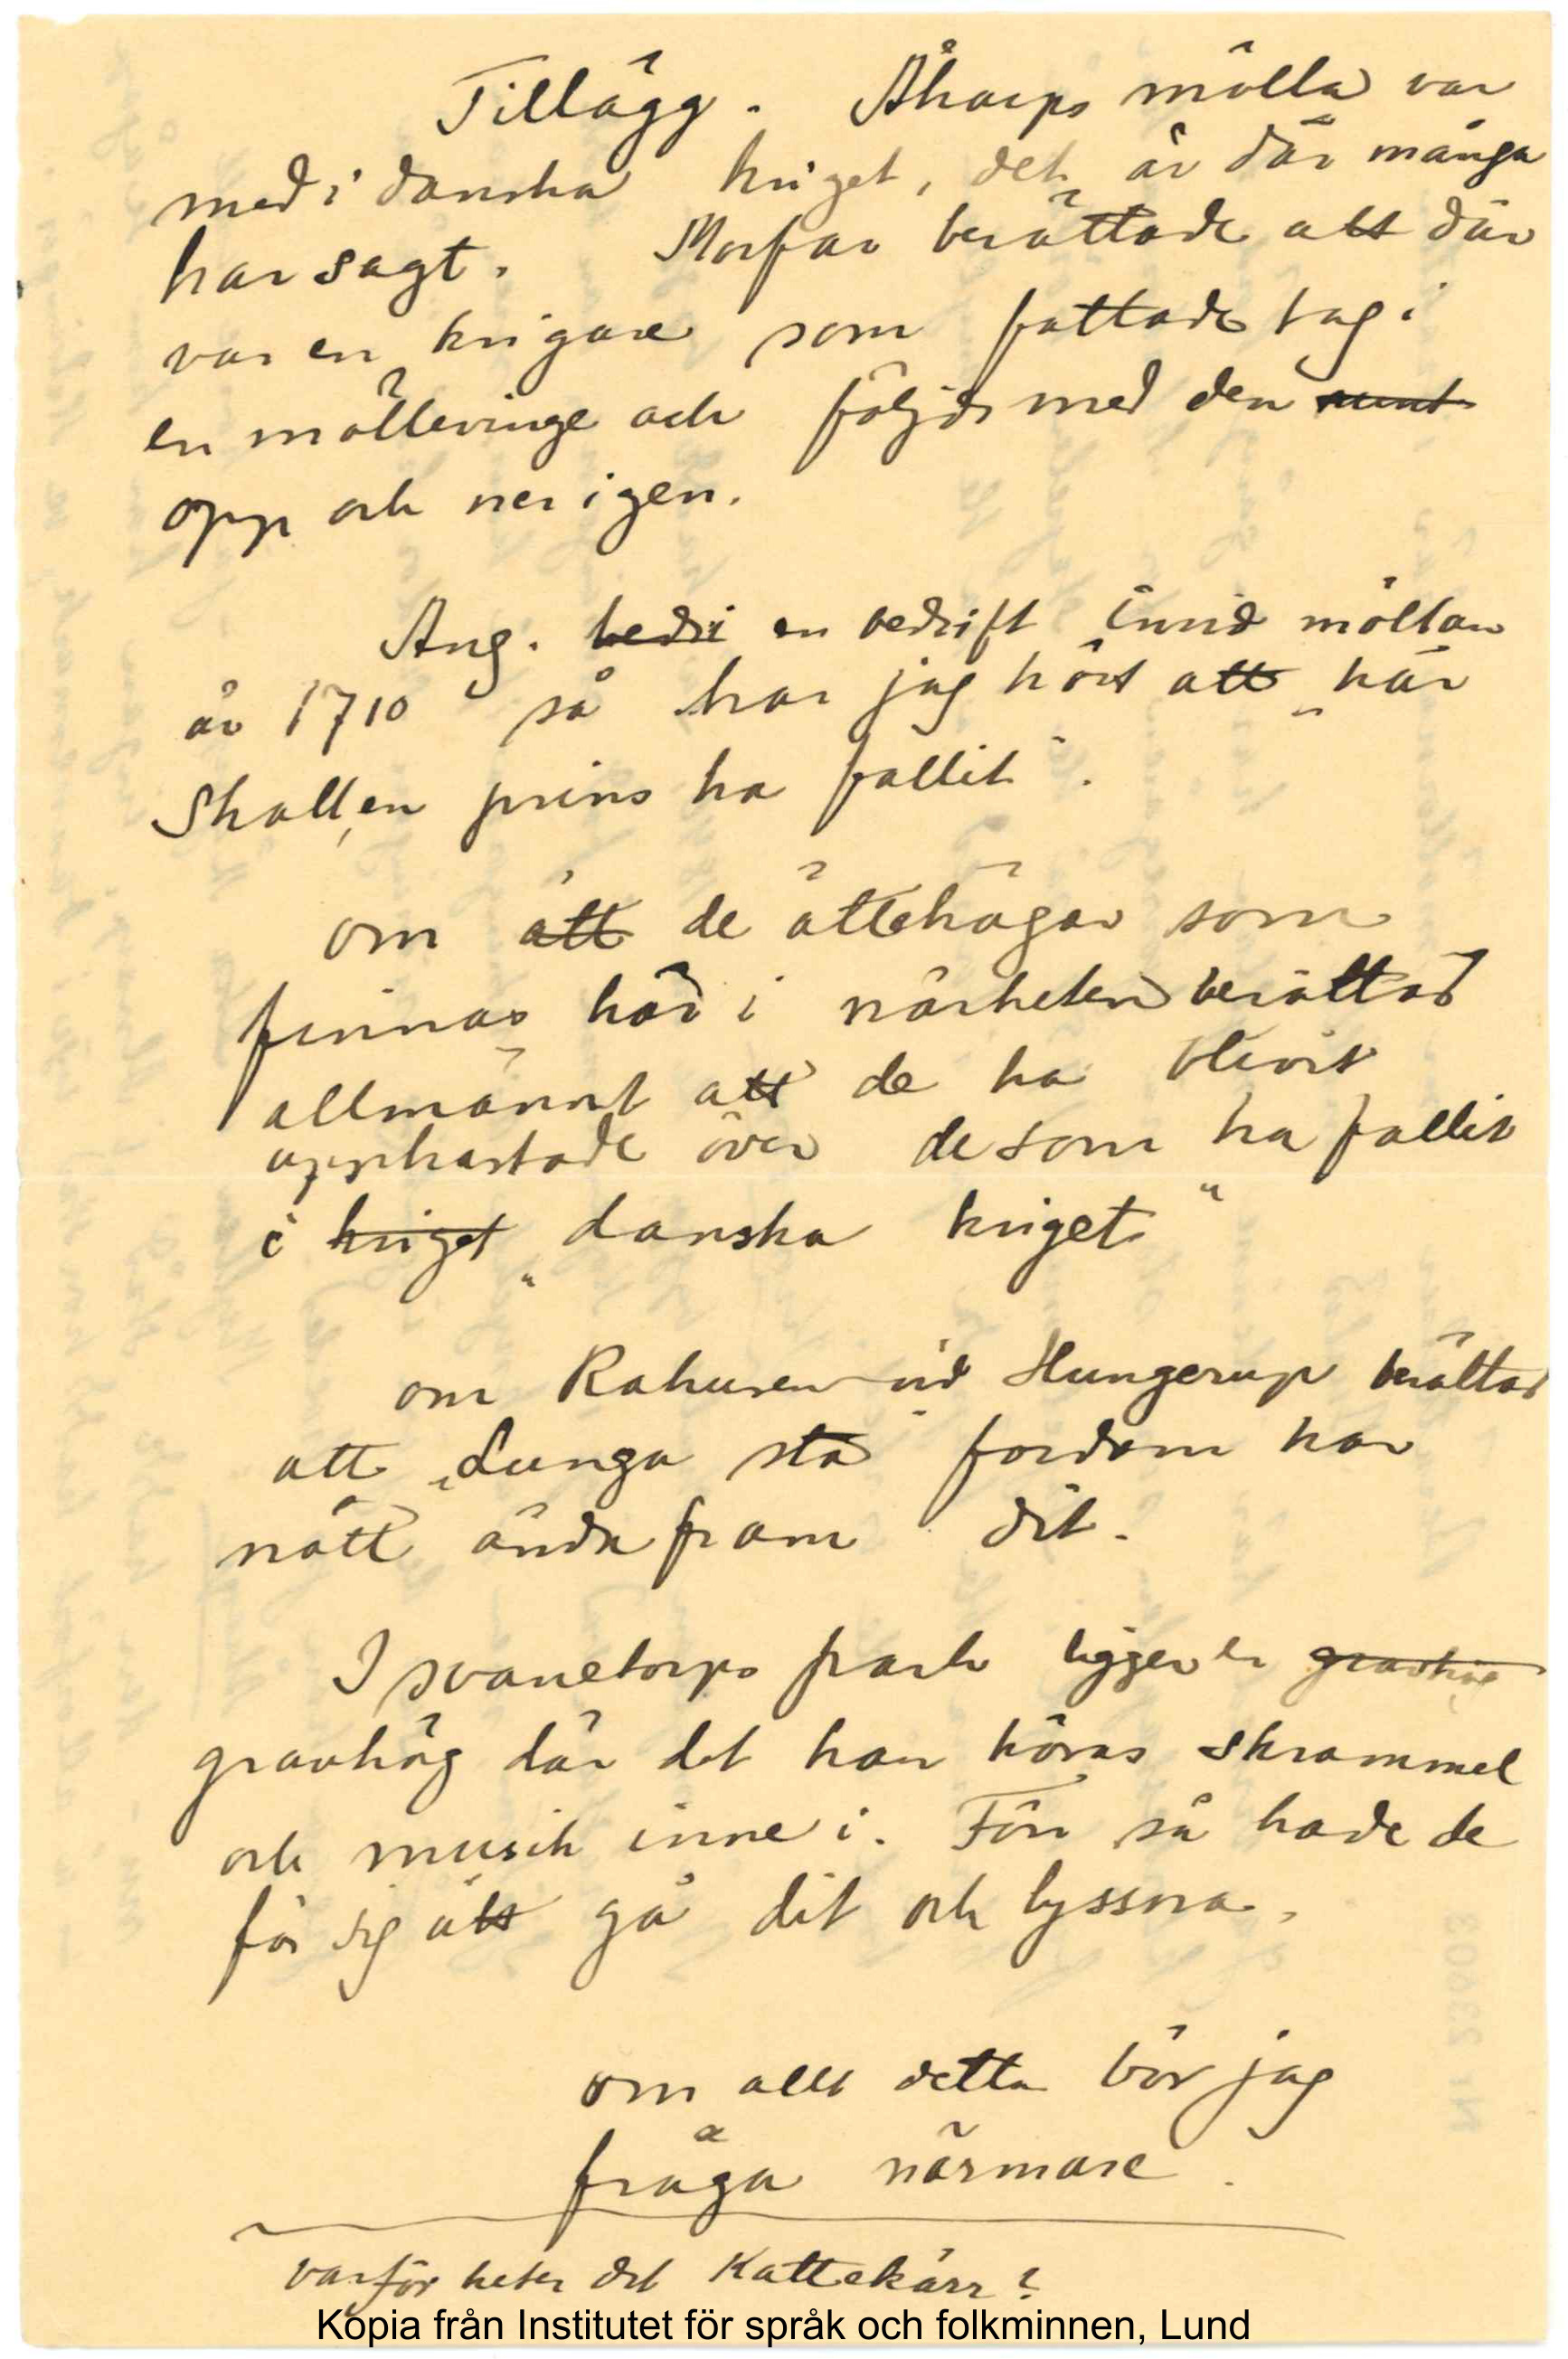 Tillägg. Åkarps mölla var
med i danska kriget, det är där många
har sagt. Morfar berättade att där
var en krigare som fattade tag i
en möllevinge och följde med den runt
opp och ner igen.
Ang. bedri en bedrift invid möllan
år 1710 så har jag hört att „här
skall en prins ha fallit".
om att de ättehögar som
finnas här i närheten berättas
allmännt att de ha blivit
uppkastade över de som ha fallit
i kriget „danska kriget"
om Rakuren vid Hungerup berättas
att „Lunga sta" fordom har
nått ända fram dit.
I svanetorps park ligger en gravhög
gravhög där det kan höras skrammel
och musik inne i. Förr så hade de
för sig att gå dit och lyssna.
om allt detta bör jag
fråga närmare.
varför heter det Kattekärr?
Nr 23603
Kopia från Institutet för språk och folkminnen, Lund